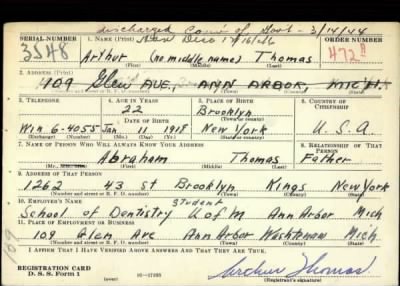 discharged Conv of Govt - 3/14/44
SERIAL NUMBER 1. NAME (Print) ORDER NUMBER
3548 Arthur (no middle name) Thomas 472A
(First) (Middle) (Last)
2. ADDRESS (Print)
109 Glen AVE, ANN ARBOR, MICH.
(Number and street or R. F. D. number) (Town) (County) (State)
3. TELEPHONE 4. AGE IN YEARS 5. PLACE OF BIRTH 6. COUNTRY OF CITIZENSHIP
22 Brooklyn
DATE OF BIRTH (Town or county)
Win. 6-4055 Jan 11 1918 New York U.S.A.
(Exchange) (Number) (Mo.) (Day) (Yr.) (State or country)
7. NAME OF PERSON WHO WILL ALWAYS KNOW YOUR ADDRESS 8. RELATIONSHIP OF THAT PERSON
Abraham Thomas Father
(First) (Middle) (Last)
9. ADDRESS OF THAT PERSON
1262 43 St Brooklyn Kings New York
(Number and street or R. F. D. number) (Town) (County) (State)
10. EMPLOYER'S NAME Student
School of Dentistry U of M Ann Arbor Mich
11. PLACE OF EMPLOYMENT OR BUSINESS
109 Glen Ave Ann Arbor Washtenaw Mich.
(Number and street or R. F. D. number) (Town) (County) (State)
I AFFIRM THAT I HAVE VERIFIED ABOVE ANSWERS AND THAT THEY ARE TRUE.
109
REGISTRATION CARD
D. S. S. Form 1 (over) Arthur Thomas
(Registrant's signature)